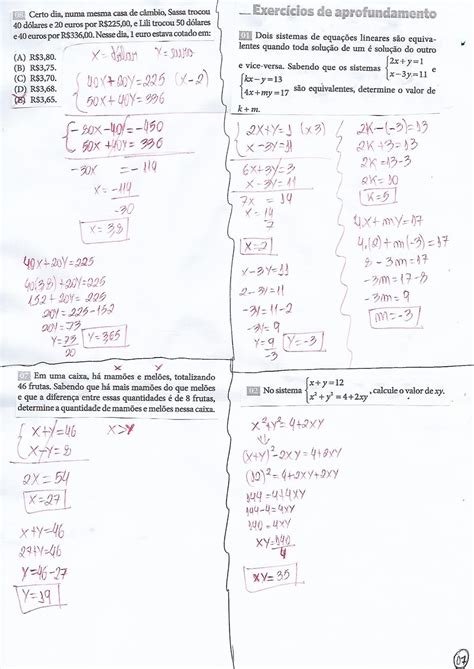 06 Certo dia, numa mesma casa de câmbio, Sassa trocou
40 dólares e 20 euros por R$225,00, e Lili trocou 50 dólares
e 40 euros por R$336,00. Nesse dia, 1 euro estava cotado em:
(A) R$3,80.
(B) R$3,75.
(C) R$3,70.
(D) R$3,68.
(E) R$3,65.
40X + 20Y = 225 (x-2)
50X + 40Y = 336
-80X - 40Y = -450
50X + 40Y = 336
-30X = -114
X = -114
-30
X = 3,8
40X + 20Y = 225
40(3,8) + 20Y = 225
152 + 20Y = 225
20Y = 225-152
20Y = 73
Y = 73
20
Y = 3,65
07 Em uma caixa, há mamões e melões, totalizando
46 frutas. Sabendo que há mais mamões do que melões
e que a diferença entre essas quantidades é de 8 frutas,
determine a quantidade de mamões e melões nessa caixa.
X+Y=46
X>Y
X-Y=8
2X = 54
X=27
X+Y=46
27+Y=46
Y=46-27
Y=19
Exercícios de aprofundamento
01 Dois sistemas de equações lineares são equiva-
lentes quando toda solução de um é solução do outro
e vice-versa. Sabendo que os sistemas {2x + y = 1
x - 3y = 11 e
{kx - y = 13
4x + my = 17 são equivalentes, determine o valor de
k + m.
2X+Y=1 (x3)
X-3Y=11
6X+3Y=3
X-3Y=11
7X = 14
X = 14
7
X=2
X-3Y=11
2-3Y=11
-3Y=11-2
-3Y=9
Y=9
-3
Y=-3
2K-(-3)=13
2K+3=13
2K=13-3
2K=10
K=5
4.X+mY=17
4.(2)+m(-3)=17
8-3m=17
-3m=17-8
-3m=9
m=-3
02 No sistema {x + y = 12
x² + y² = 4 + 2xy , calcule o valor de xy.
X²+Y²=4+2XY
(X+Y)²-2XY=4+2XY
(12)²=4+2XY+2XY
144=4+4XY
144-4=4XY
140=4XY
XY=140
4
XY=35
07